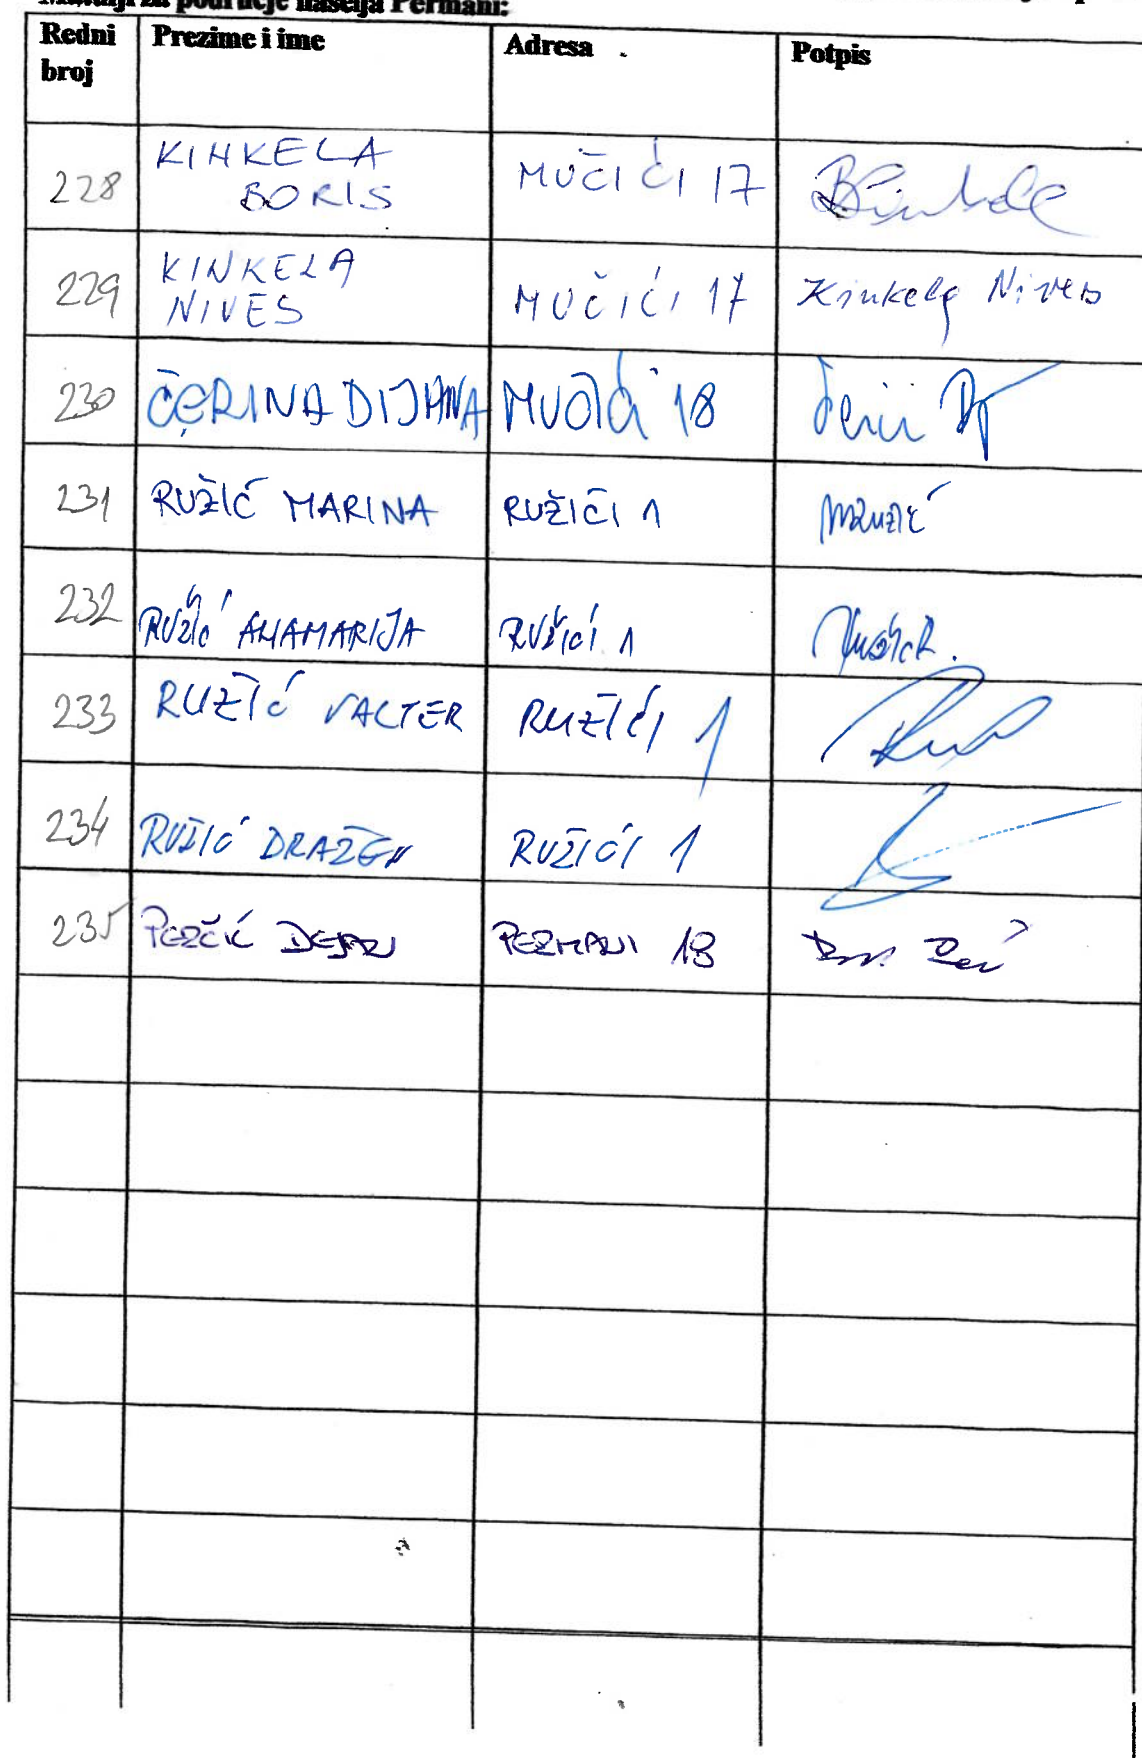 za područje naselja Permani:
Redni broj Prezime i ime Adresa Potpis
228 KINKELA BORIS MUČIĆI 17
229 KINKELA NIVES MUČIĆI 17 Kinkela Nives
230 ČERINA DIJANA MUČIĆI 18
231 RUŽIĆ MARINA RUŽIĆI 1 MRužić
232 RUŽIĆ ANAMARIJA RUŽIĆI 1
233 RUŽIĆ VALTER RUŽIĆI 1
234 RUŽIĆ DRAŽEN RUŽIĆI 1
235 DEJAN PERMANI 18